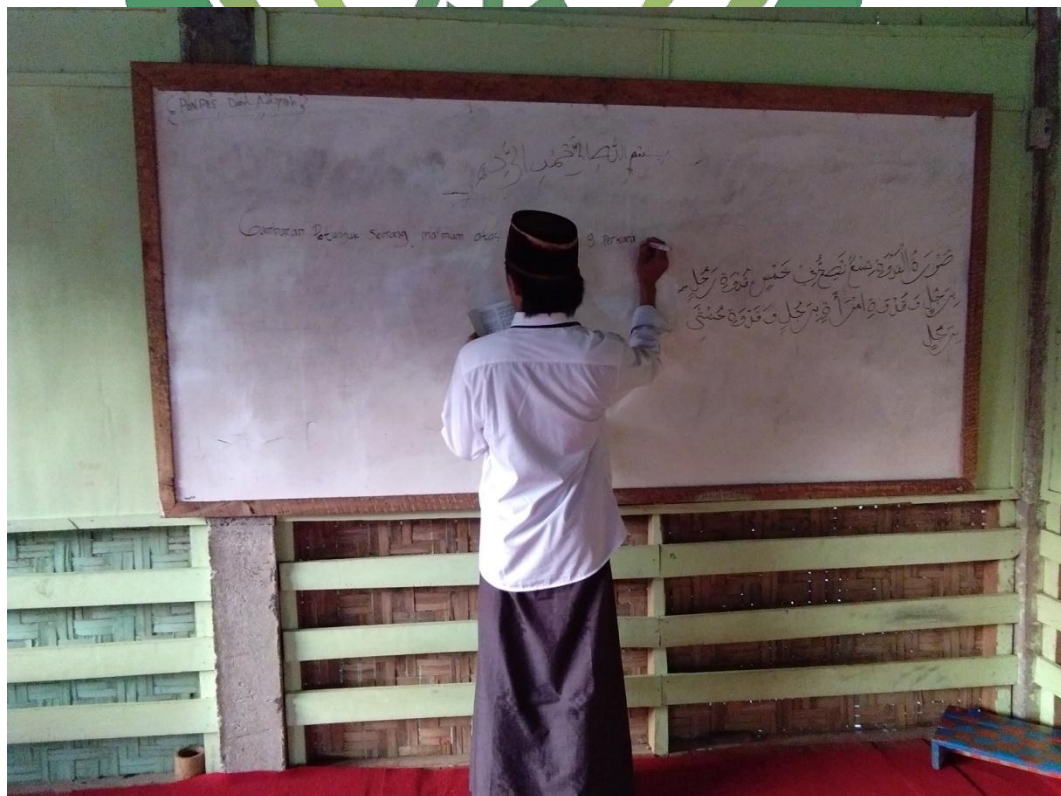 PONPES Darul
بسم الله الرحمن الرحيم
Gambaran Petunjuk Seorang ma'mum atas 9 Perkara
صُوْرَةُ الْقُدْوَةِ تِسْعٌ تَصِحُّ فِيْ خَمْسٍ قُدْوَةِ رَجُلٍ
بِرَجُلٍ وَقُدْوَةِ امْرَأَةٍ بِرَجُلٍ وَقُدْوَةِ خُنْثَى
بِرَجُلٍ